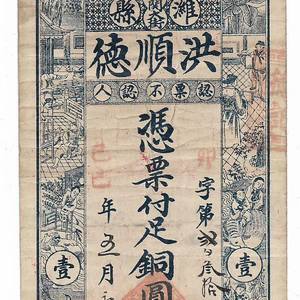 濰縣
洪順德
認票不認人
字第 叁拾
憑票付足銅圓
己巳
年五月
壹
壹